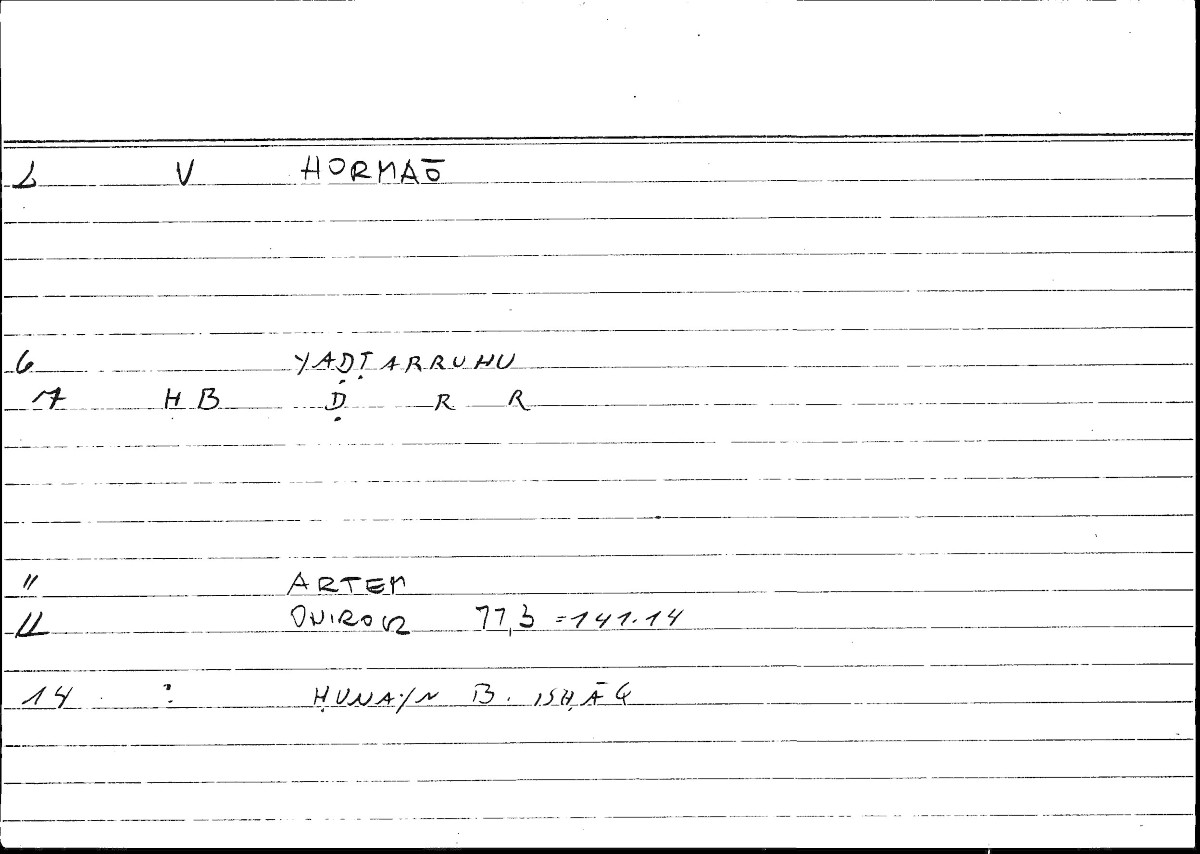 1 V HORMAŌ
6 YAḌṬARRUHU
7 HB Ḍ R R
" ARTEM
11 ONIROCR 77,3 = 141.14
14 ? ḤUNAYN B. ISḤĀQ